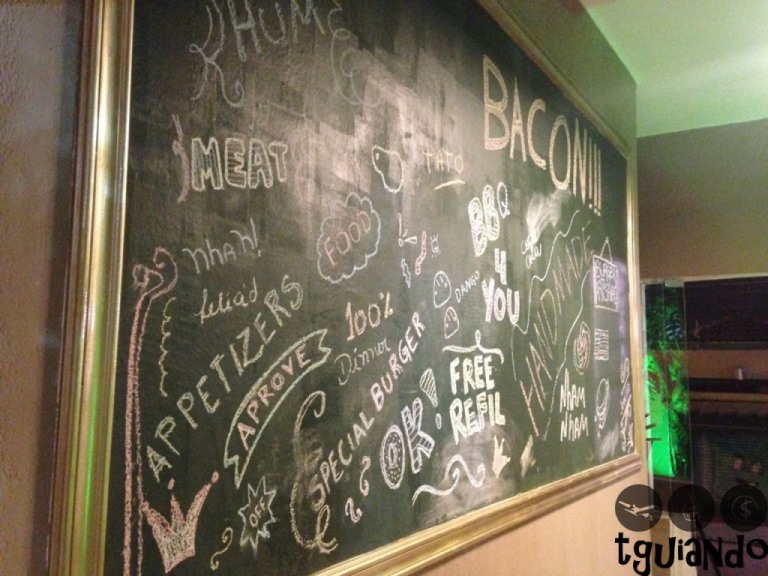 RHUM
MEAT
TATO
BACON!!!
BBQ
4
YOU
FOOD
nham!
APPETIZERS
APROVE
100%
Dinner
DANGO
SPECIAL BURGER
OK!
FREE
REFIL
HANDMADE
NHAM
NHAM
OFF
tguiando